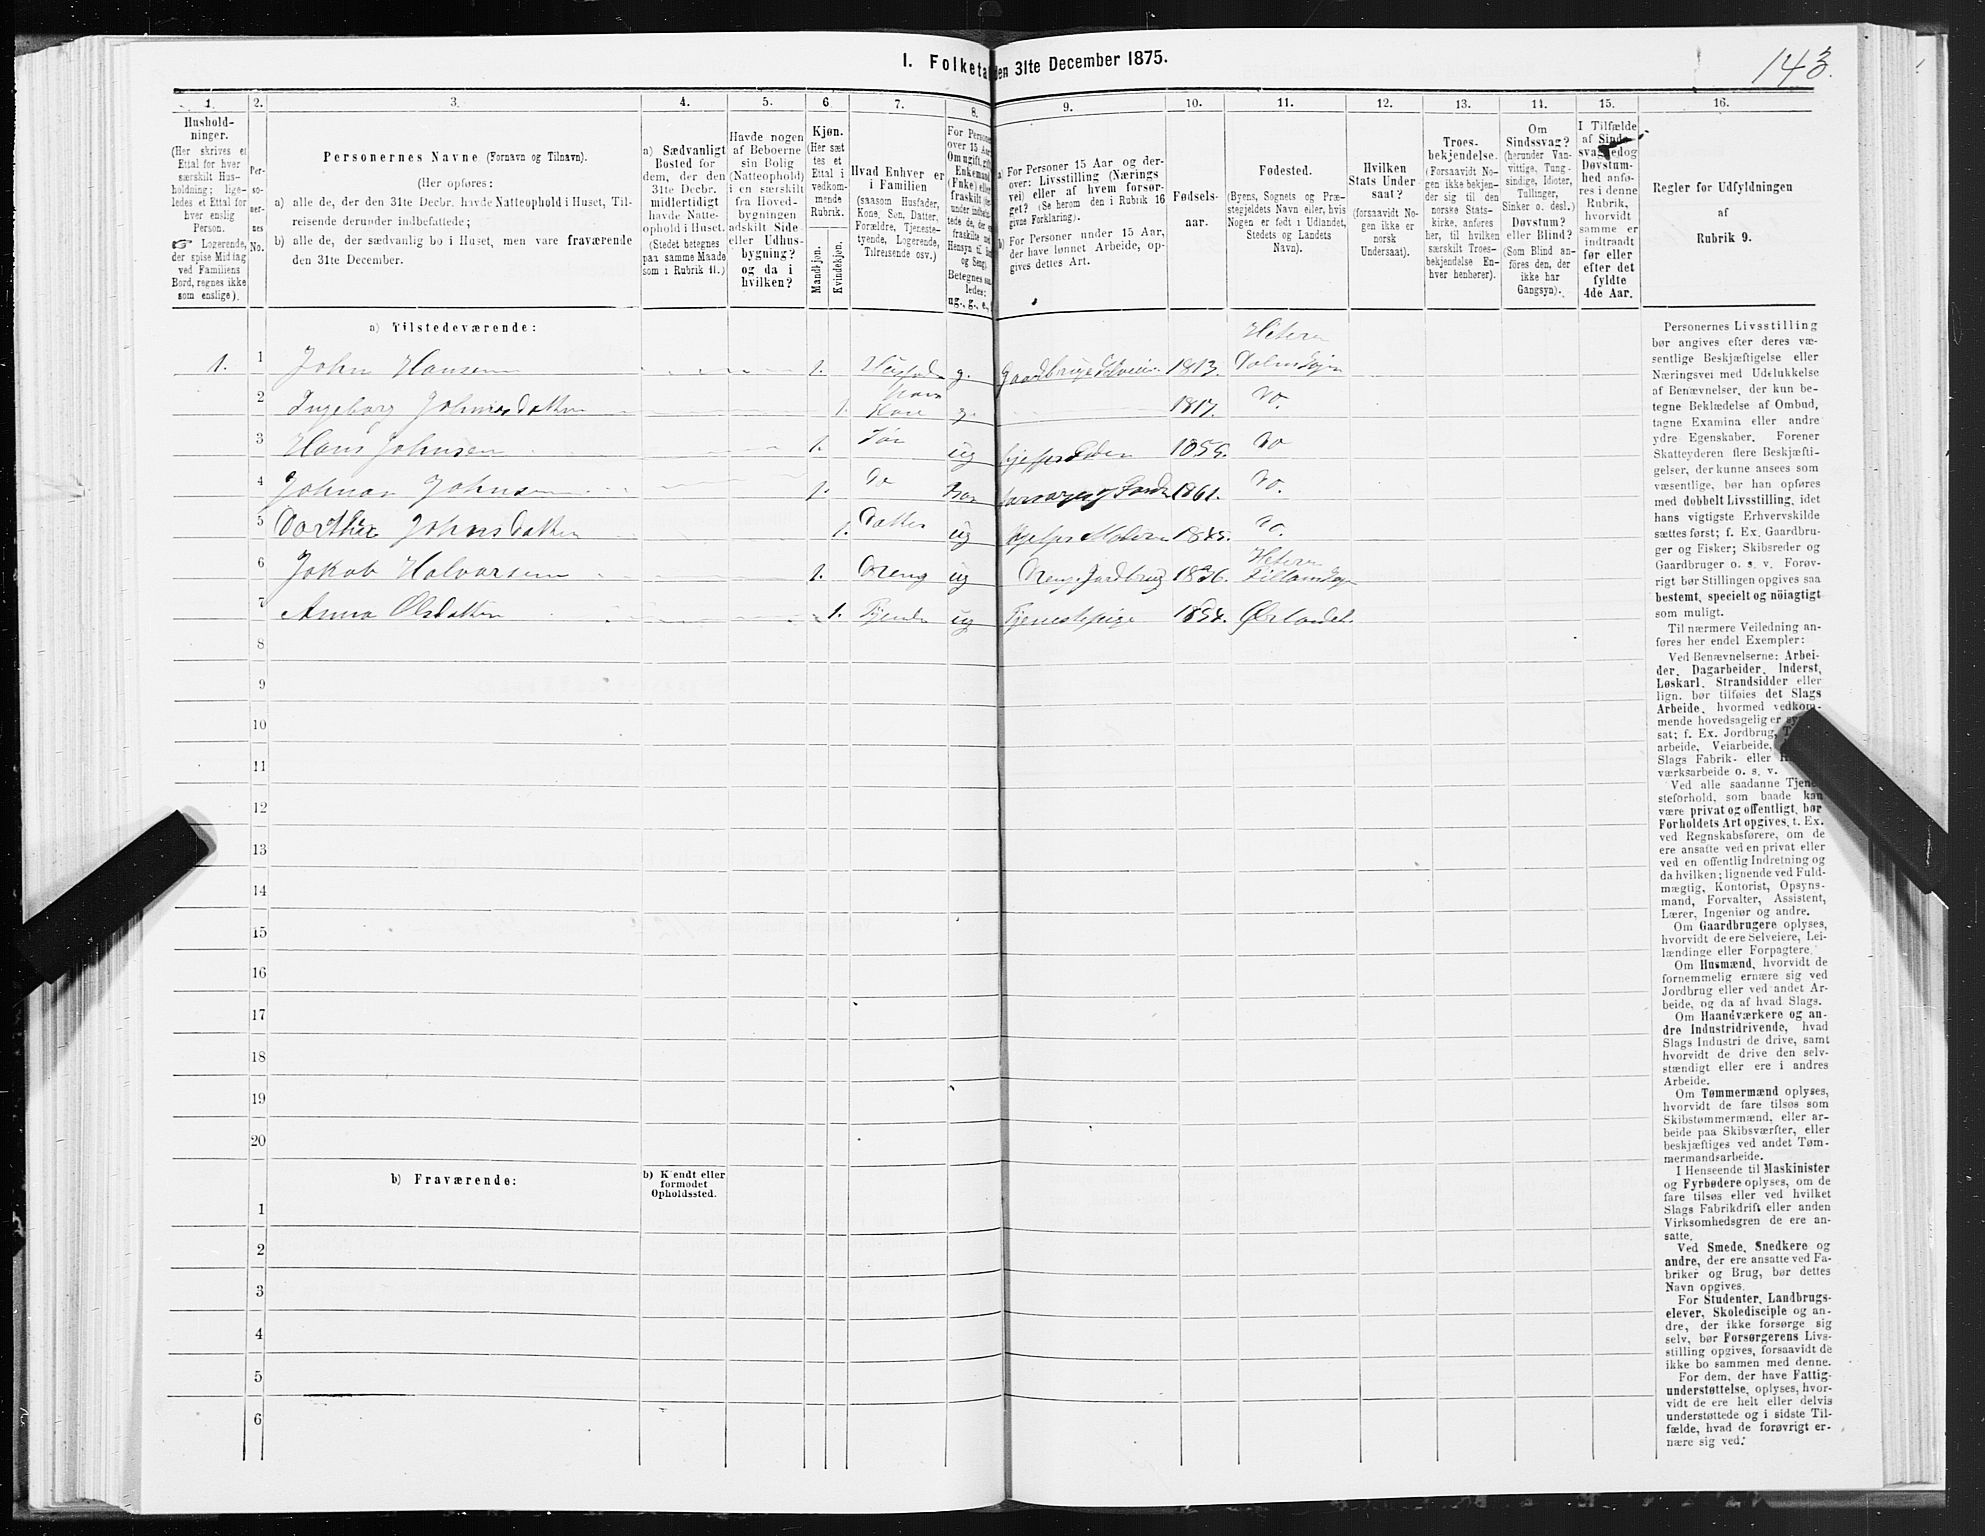 143.
I. Folketa
den 31te December 1875.
1. 2. 3. 4. 5. 6. 7. 8. 9. 10. 11. 12. 13. 14. 15. 16.
Hushold-
ninger.
(Her skrives et
Ettal for hver
særskilt Hus-
holdning; lige-
ledes et Ettal for
hver enslig
Person.
☞ Logerende,
der spise Middag
ved Familiens
Bord, regnes ikke
som enslige).
Per-
so-
ner-
nes
No.
Personernes Navne (Fornavn og Tilnavn).
(Her opføres:
a) alle de, der den 31te Decbr. havde Natteophold i Huset, Til-
reisende derunder indbefattede;
b) alle de, der sædvanlig bo i Huset, men vare fraværende
den 31te December.
a) Sædvanligt
Bosted for
dem, der den
31te Decbr.
midlertidigt
havde Natte-
ophold i Huset.
(Stedet betegnes
paa samme Maade
som i Rubrik 11.)
Havde nogen
af Beboerne
sin Bolig
(Natteophold)
i en særskilt
fra Hoved-
bygningen
adskilt Side-
eller Udhus-
bygning?
og da i
hvilken?
Kjøn.
(Her sæt
tes et
Ettal i
vedkom-
mende
Rubrik.
Mandkjøn.
Kvindekjøn.
Hvad Enhver er
i Familien
(saasom Husfader,
Kone, Søn, Datter,
Forældre, Tjeneste-
tyende, Logerende,
Tilreisende osv.)
For Persone
over 15 Aar
Om ugift, gift
Enkemand
(Enke) eller
fraskilt
Betegnes saa
ledes:
ug., g., e.,
a) For Personer 15 Aar og der-
over: Livsstilling (Nærings
vei) eller af hvem forsør-
get? (Se herom den i Rubrik 16
givne Forklaring).
b) For Personer under 15 Aar,
der have lønnet Arbeide, op-
gives dettes Art.
Fødsels-
aar.
Fødested.
(Byens, Sognets og Præ-
stegjeldets Navn eller, hvis
Nogen er født i Udlandet,
Stedets og Landets
Navn).
Hvilken
Stats Under-
saat?
(forsaavidt No-
gen ikke er
norsk
Undersaat).
Troes-
bekjendelse.
(Forsaavidt No-
gen ikke bekjen-
der sig til den
norske Stats-
kirke, anføres
her, til hvilken
særskilt Troes-
bekjendelse En-
hver henhører).
Om
Sindssvag?
(herunder Van-
vittige, Tung-
sindige, Idioter,
Tullinger,
Sinker o. desl.)
Døvstum?
eller Blind?
(Som Blind an-
føres den, der
ikke har
Gangsyn).
I Tilfælde
af Sinds-
svaghed og
Døvstum-
hed anfø-
res i denne
Rubrik,
hvorvidt
samme er
indtraadt
før eller
efter det
fyldte
4de Aar.
Regler for Udfyldningen
af
Rubrik 9.
a) Tilstedeværende:
1. 1 John Hansen 1. g. Gaardbruger Selveier 1813. Hitteren
2 Ingeborg Johnsdatter 1. Kone g. 1817. Do.
3 Hans Johnsen 1. Søn ug Do
4 Johan Johnsen 1. Do 1861. Do.
5 Dorthea Johnsdatter 1. Datter ug Do.
6 Jakob Halvorsen 1. Dreng ug Hitteren
7 Anna Olsdatter 1. Tjende ug Tjenestepige 1854. Ørlandet.
8
9
10
11
12
13
14
15
16
17
18
19
20
b) Fraværende:
b) Kjendt eller
formodet
Opholdssted.
1
2
3
4
5
6
Personernes Livsstilling
bør angives efter deres væ-
sentlige Beskjæftigelse eller
Næringsvei med Udelukkelse
af Benævnelser, der kun be-
tegne Beklædelse af Ombud,
tagne Examina eller andre
ydre Egenskaber. Forener
Skatteyderen flere Beskjæfti-
gelser, der kunne ansees som
væsentlige, bør han opføres
med dobbelt Livsstilling, idet
hans vigtigste Erhvervskilde
sættes først; f. Ex. Gaardbru-
ger og Fisker; Skibsreder og
Gaardbruger o. s. v. Forøv-
rigt bør Stillingen opgives saa
bestemt, specielt og nöiagtigt
som muligt.
Til nærmere Veiledning an-
føres her endel Exempler:
Ved Benævnelserne: Arbei-
der, Dagarbeider, Inderst,
Løskarl, Strandsidder eller
lign. bør tilføies det Slags
Arbeide, hvormed vedkom-
mende hovedsagelig er
sat; f. Ex. Jordbrug,
arbeide, Veiarbeide,
Slags Fabrik- eller
værksarbeide o. s. v.
Ved alle saadanne Tjene-
steforhold, som baade kan
være privat og offentligt, bør
Forholdets Art opgives, t. Ex.
ved Regnskabsførere, om de
ere ansatte ved en privat eller
ved en offentlig Indretning og
da hvilken; lignende ved Fuld-
mægtig, Kontorist, Opsyns-
mand, Forvalter, Assistent,
Lærer, Ingeniør og andre.
Om Gaardbrugere oplyses,
hvorvidt de ere Selveiere, Lei-
lændinge eller Forpagtere.
Om Husmænd, hvorvidt de
fornemmelig ernære sig ved
Jordbrug eller ved andet Ar-
beide, og da af hvad Slags.
Om Haandværkere og an-
dre Industridrivende, hvad
Slags Industri de drive, samt
hvorvidt de drive den selv-
stændigt eller ere i andres
Arbeide.
Om Tømmermænd oplyses,
hvorvidt de fare tilsøs som
Skibstømmermænd, eller ar-
beide paa Skibsværfter, eller
beskjæftiges ved andet Tøm-
mermandsarbeide.
I Henseende til Maskinister
og Fyrbødere oplyses, om de
fare tilsøs eller ved hvilket
Slags Fabrikdrift eller anden
Virksomhedsgren de ere an-
satte.
Ved Smede, Snedkere og
andre, der ere ansatte ved Fa-
briker og Brug, bør dettes
Navn opgives.
For Studenter, Landbrugs-
elever, Skoledisciple og an-
dre, der ikke forsørge sig
selv, bør Forsørgerens Livs-
stilling opgives, forsaavidt de
ikke bo sammen med denne.
For dem, der have Fattig-
understøttelse, oplyses, hvor-
vidt de ere helt eller delvis
understøttede og i sidste Til-
fælde, hvad de forøvrigt er-
nære sig ved.